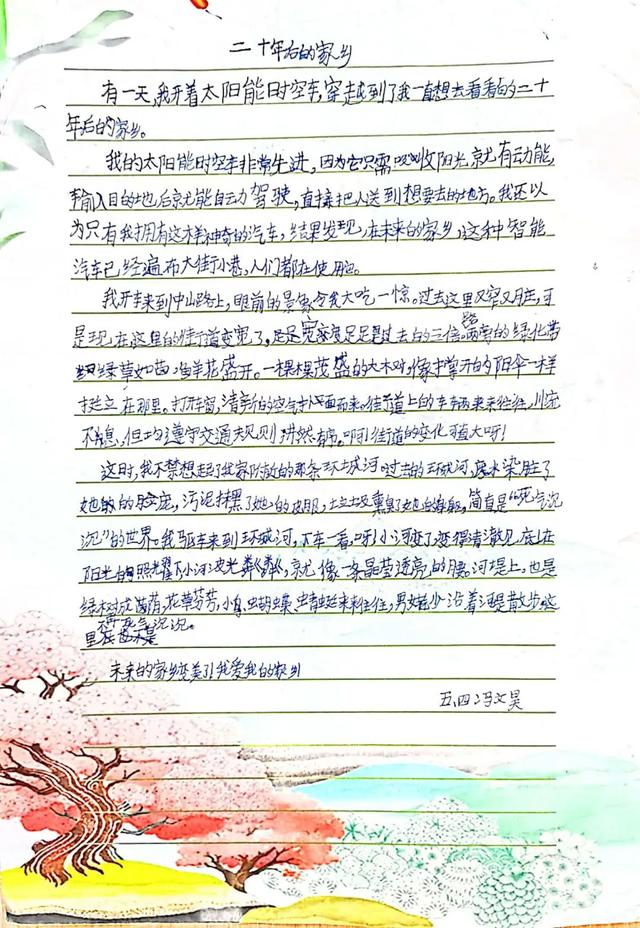 二十年后的家乡
有一天,我开着太阳能时空车,穿越到了我一直想去看看的二十
年后的家乡。
我的太阳能时空车非常先进,因为它只需吸收阳光就有动能,
输入目的地后就能自动驾驶,直接把人送到想要去的地方。我还以
为只有我拥有这样神奇的汽车,结果发现,在未来的家乡,这种智能
汽车已经遍布大街小巷,人们都在使用。
我开车来到中山路上,眼前的景象令我大吃一惊。过去这里又窄又脏,可
是现在这里的街道变宽了,足足宽足足是过去的三倍。路两旁的绿化带
绿草如茵,鲜花盛开。一棵棵茂盛的大树,像撑开的太阳伞一样
挺立在那里。打开车窗,清新的空气扑面而来。街道上的车辆来来往往,川流
不息,但均遵守交通规则,井然有序。啊!街道的变化可真大呀!
这时,我不禁想起了我家附近的那条环城河。过去的环城河,废水染脏了
她的脸庞,污泥抹黑了她的皮肤,垃圾熏臭了她的,简直是“死气沉
沉”的世界。我驱车来到环城河,下车一看,呀!小河变了,变得清澈见底,在
阳光的照耀下小河波光粼粼,就像一条晶莹透亮的腰。河堤上,也是
绿树成荫,花草芬芳,小鸟、蝴蝶、蜻蜓飞来往往,男女老少沿着河堤散步,这
里再也不是死气沉沉。
未来的家乡变美了!我爱我的家乡!
五.四 冯文昊